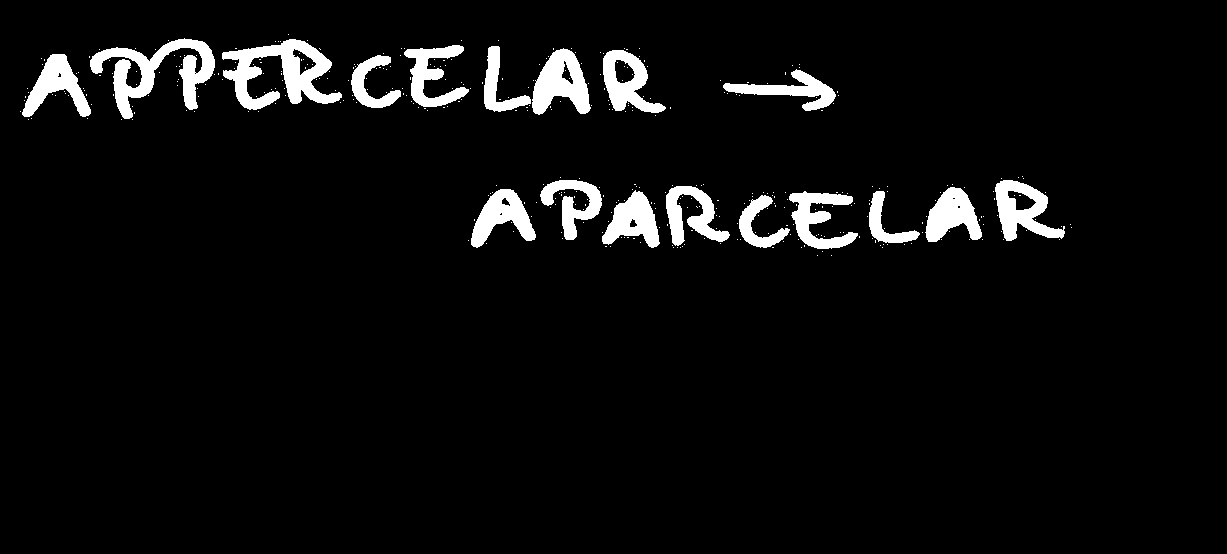 APPERCELAR →
APARCELAR